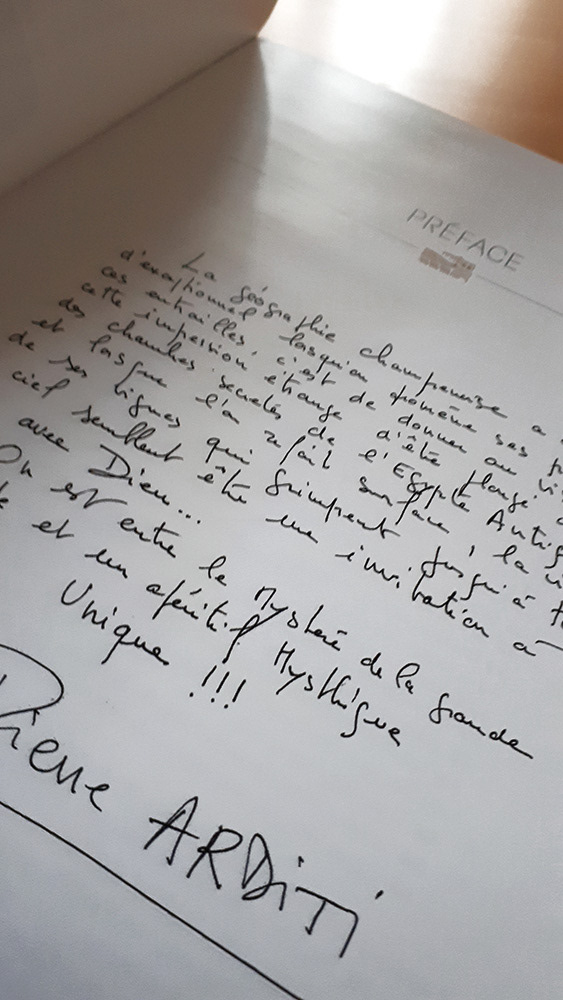 PRÉFACE
La géographie champenoise a
d'exceptionnel lorsqu'on promène ses
ces entrailles, c'est de donner au
cette impression étrange d'être plongé
des chambres secrètes de l'Egypte
et lorsque l'on refait surface, la
de ses lignes qui grimpent jusqu'à
ciel semblent être une invitation à
avec Dieu...
On est entre le Mystère de la Grande
et un apéritif Mysthique
Unique !!!
Pierre ARDiTi